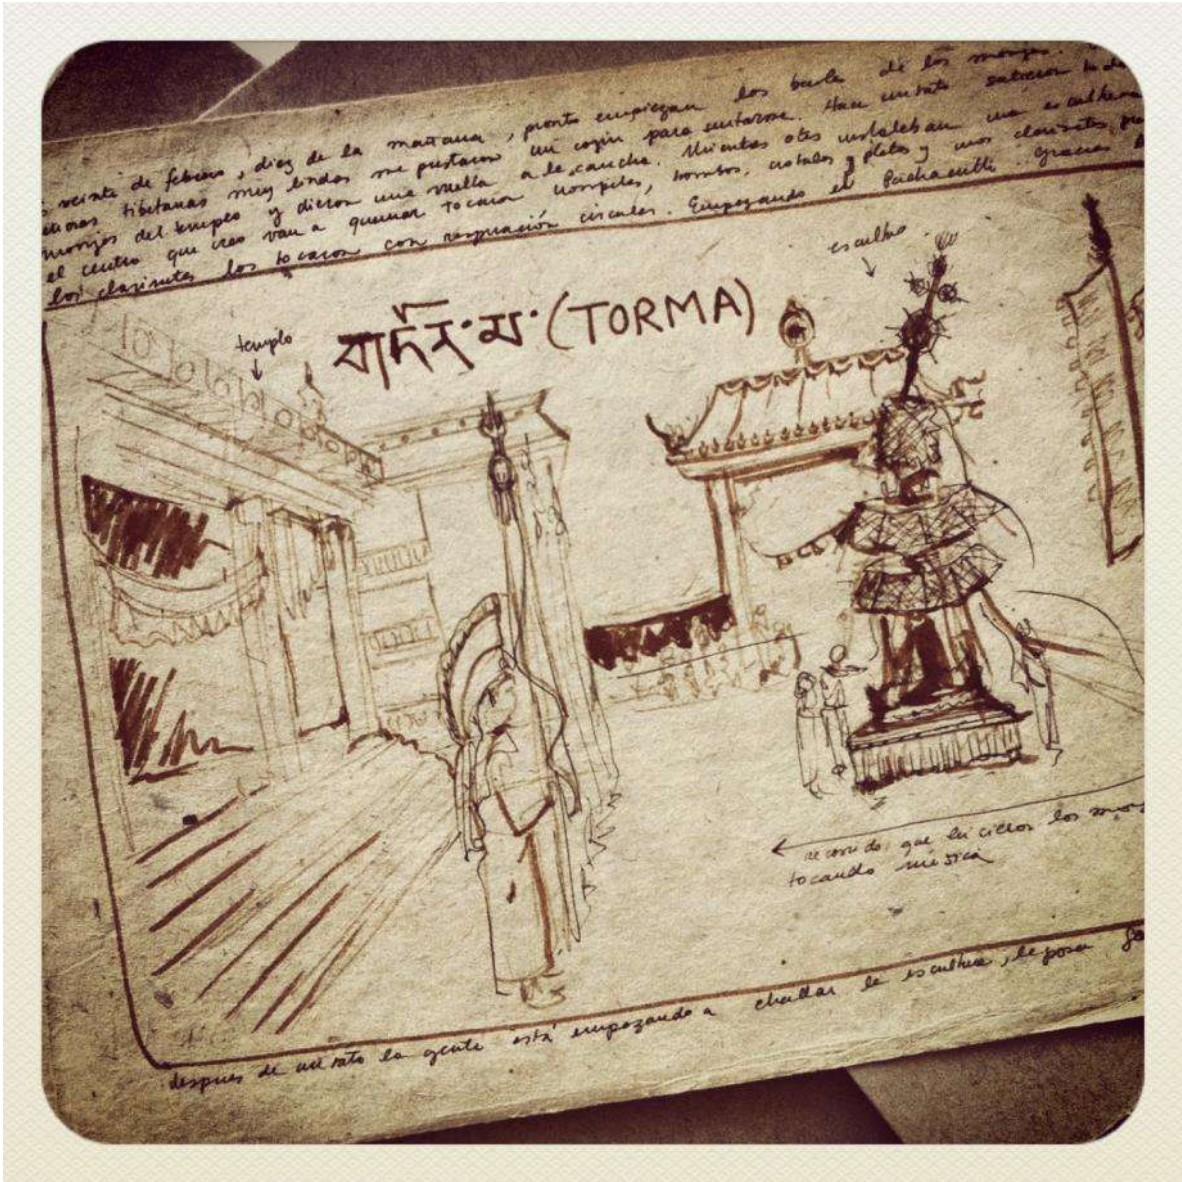 veinte de febrero, diez de la mañana, pronto empiezan los baile de los monjes.
tibetanas muy lindas me pustaron un cojin para sentarse. Hace un rato salieron
monjes del templo y dieron una vuelta a la cancha. Mientras otros instalaban una escultura
el centro que creo van a quemar tocaron trompetas, bombos, crotalos y platos y unos clarinetes
los clarinetes los tocaron con respiración circular. Empezando el Pachacutti gracias
escultura
templo
གཏོར་མ་ (TORMA)
recorrido que hicieron los
tocando música
despues de un rato la gente está empezando a challar la escultura, le posan